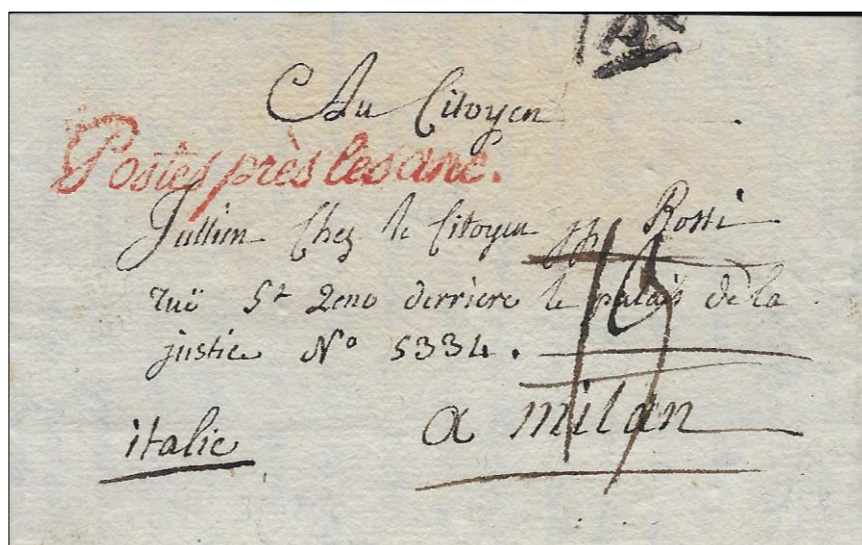 Au Citoyen
Postes près les anc.
Jullien Chez le Citoyen Rossi
ruë St Zeno derriere le palais de la
justice N° 5334.
italie a milan